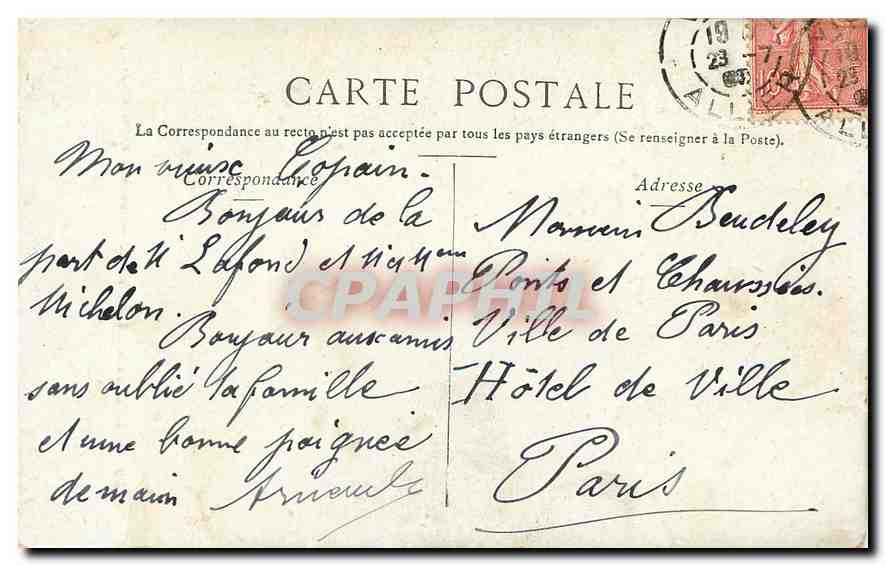 CARTE POSTALE
La Correspondance au recto n'est pas acceptée par tous les pays étrangers (Se renseigner à la Poste).
Correspondance
Mon vieux Copain.
Bonjour de la
part de M Lafond et M et Mme
Michelon.
Bonjour aux amis
sans oublié ta famille
et une bonne poignée
de main
Adresse
Monsieur Beudeley
Ponts et Chaussées.
Ville de Paris
Hôtel de Ville
Paris
CPAPHIL
19
23 -7
ALLI
19
23
ALL